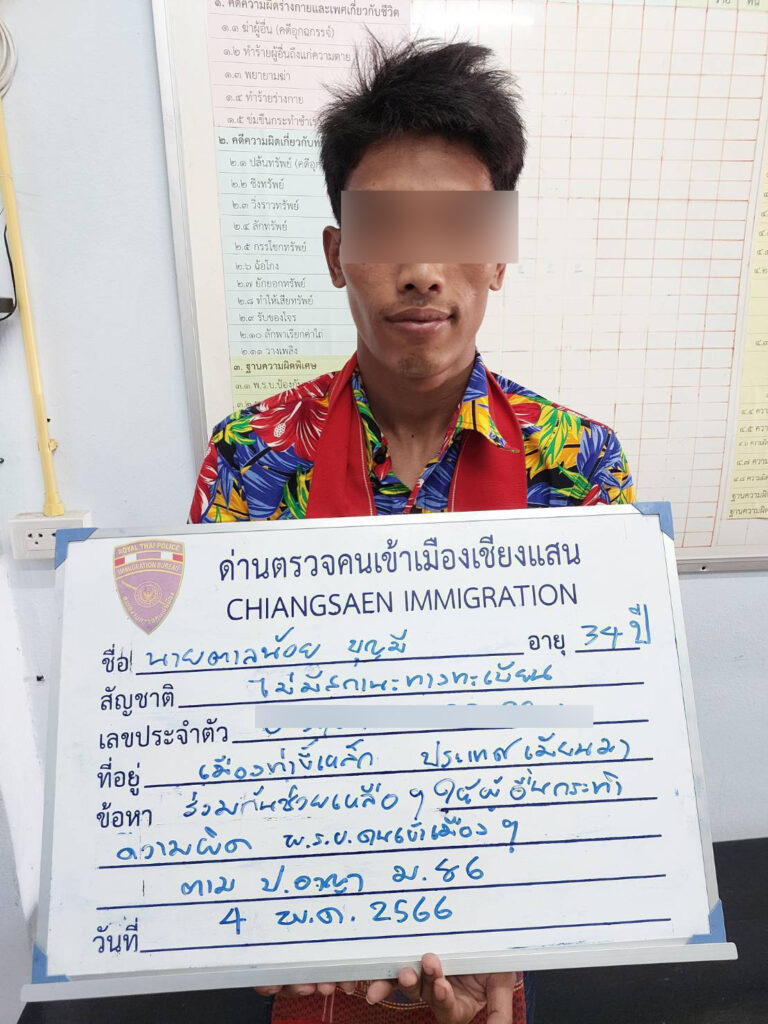 ๑. คดีความผิดร่างกายและเพศเกี่ยวกับชีวิต
๑.๑ ฆ่าผู้อื่น (คดีอุกฉกรรจ์)
๑.๒ ทำร้ายผู้อื่นถึงแก่ความตาย
๑.๓ พยายามฆ่า
๑.๔ ทำร้ายร่างกาย
๑.๕ ข่มขืนกระทำชำเรา
๒. คดีความผิดเกี่ยวกับ
๒.๑ ปล้นทรัพย์
๒.๒ ชิงทรัพย์
๒.๓ วิ่งราวทรัพย์
๒.๔ ลักทรัพย์
๒.๕ กรรโชกทรัพย์
๒.๖ ฉ้อโกง
๒.๗ ยักยอกทรัพย์
๒.๘ ทำให้เสียทรัพย์
๒.๙ รับของโจร
๒.๑๐ ลักพาเรียกค่าไถ่
๒.๑๑ วางเพลิง
๓. ฐานความผิดพิเศษ
๓.๑ พ.ร.บ.ป้องกัน
ROYAL THAI POLICE
IMMIGRATION BUREAU
ด่านตรวจคนเข้าเมืองเชียงแสน
CHIANGSAEN IMMIGRATION
ชื่อ นายตาลน้อย บุญมี อายุ 34 ปี
สัญชาติ ไม่มีสถานะทางทะเบียน
เลขประจำตัว
ที่อยู่ เมืองท่าขี้เหล็ก ประเทศเมียนมา
ข้อหา ร่วมกันช่วยเหลือฯ ให้ผู้อื่นกระทำ
ความผิด พ.ร.บ.คนเข้าเมืองฯ
ตาม ป.อาญา ม.86
วันที่ 4 พ.ค. 2566